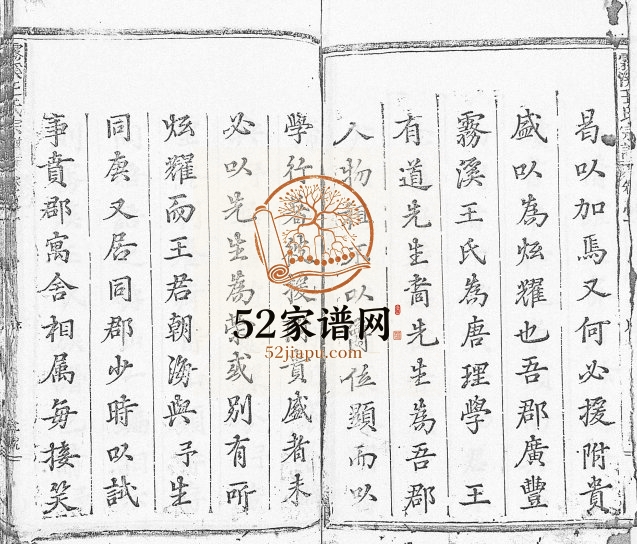 霧溪王氏宗譜
曷以加焉又何必援附貴
盛以為炫耀也吾郡廣豐
霧溪王氏為唐理學 王
有道先生裔先生為吾郡
人物以位顯而以
學行援貴盛者未
必以先生為榮或別有所
炫耀而王君朝海與予生
同庚又居同郡少時以試
事賁郡寓舍相属每接笑
霧溪王氏宗譜
52家谱网
52jiapu.com